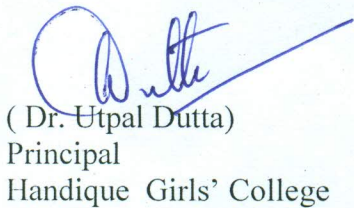 Dutta
( Dr. Utpal Dutta)
Principal
Handique Girls' College